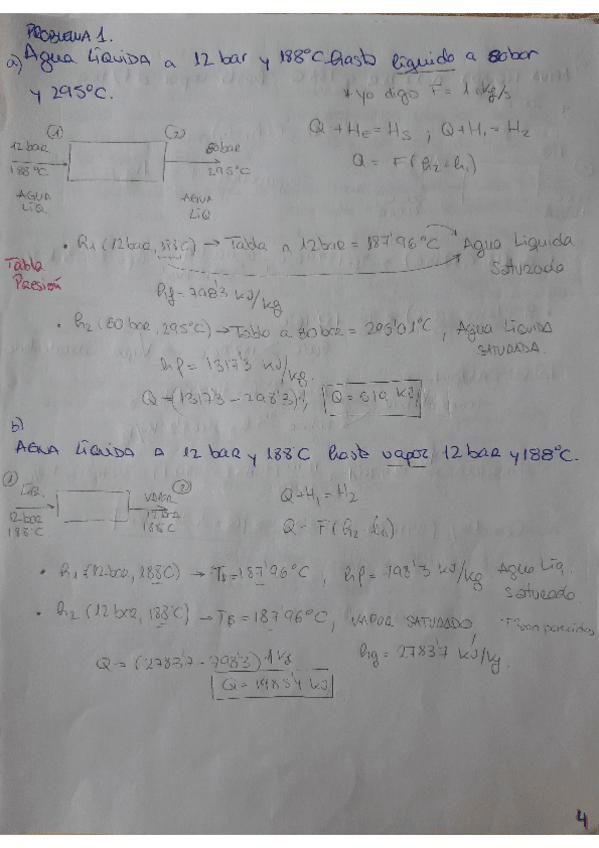 PROBLEMA 1.
a) Agua Líquida a 12 bar y 188°C hasta líquido a 80bar
y 295°C.
* yo digo F = 1 kg/s
(1) (2)
12 bar
188°C
80bar
295°C
AGUA
LÍQ.
AGUA
LÍQ
Q + HE = HS ; Q + H1 = H2
Q = F(h2 - h1)
• h1 (12 bar, 188°C) → Tabla a 12 bar = 187'96°C Agua Líquida
Saturada
Tabla
Presión
hf = 798'3 kJ/kg
• h2 (80 bar, 295°C) → Tabla a 80 bar = 295'01°C, Agua Líquida
SATURADA.
hf = 1317'3 kJ/kg.
Q = (1317'3 - 798'3)1, Q = 519 kJ
b)
AGUA LÍQUIDA A 12 bar y 188°C hasta vapor, 12 bar y 188°C.
(1) LÍQ. VAPOR (2)
12 bar
188°C
12 bar
188°C
Q + H1 = H2
Q = F(h2 - h1)
• h1 (12 bar, 188°C) → TB = 187'96°C, hf = 798'3 kJ/kg Agua Líq.
saturado.
• h2 (12 bar, 188°C) → TB = 187'96°C, VAPOR SATURADO *T son parecidas
hg = 2783'7 kJ/kg.
Q = (2783'7 - 798'3) 1 kg
Q = 1985'4 kJ
4